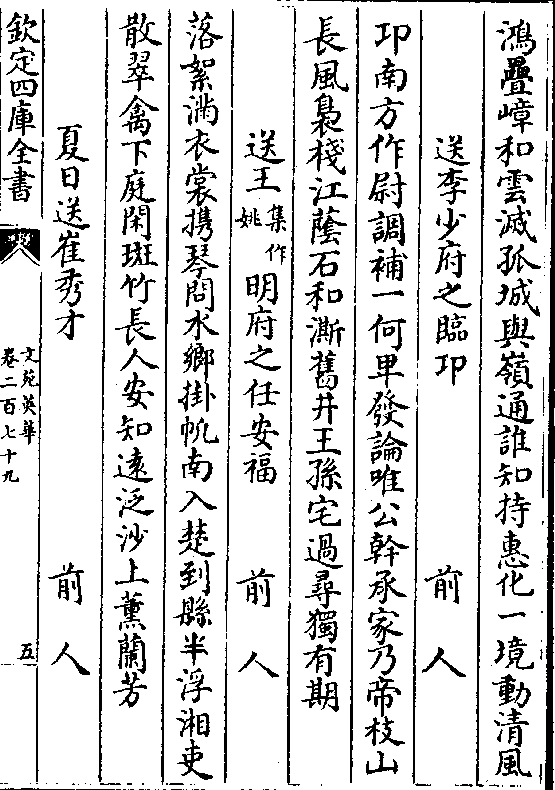 鴻疊嶂和雲滅孤城與嶺通誰知持惠化一境動清風
送李少府之臨邛　前人
邛南方作尉調補一何卑發論唯公幹承家乃帝枝山
長風裊棧江蔭石和澌舊井王孫宅過尋獨有期
送王集作姚明府之任安福　前人
落絮滿衣裳携琴問水鄉掛帆南入楚到縣半浮湘吏
散翠禽下庭閑斑竹長人安知遠泛沙上薫蘭芳
夏日送崔秀才　前人
欽定四庫全書
文苑英華
卷二百七十九
五